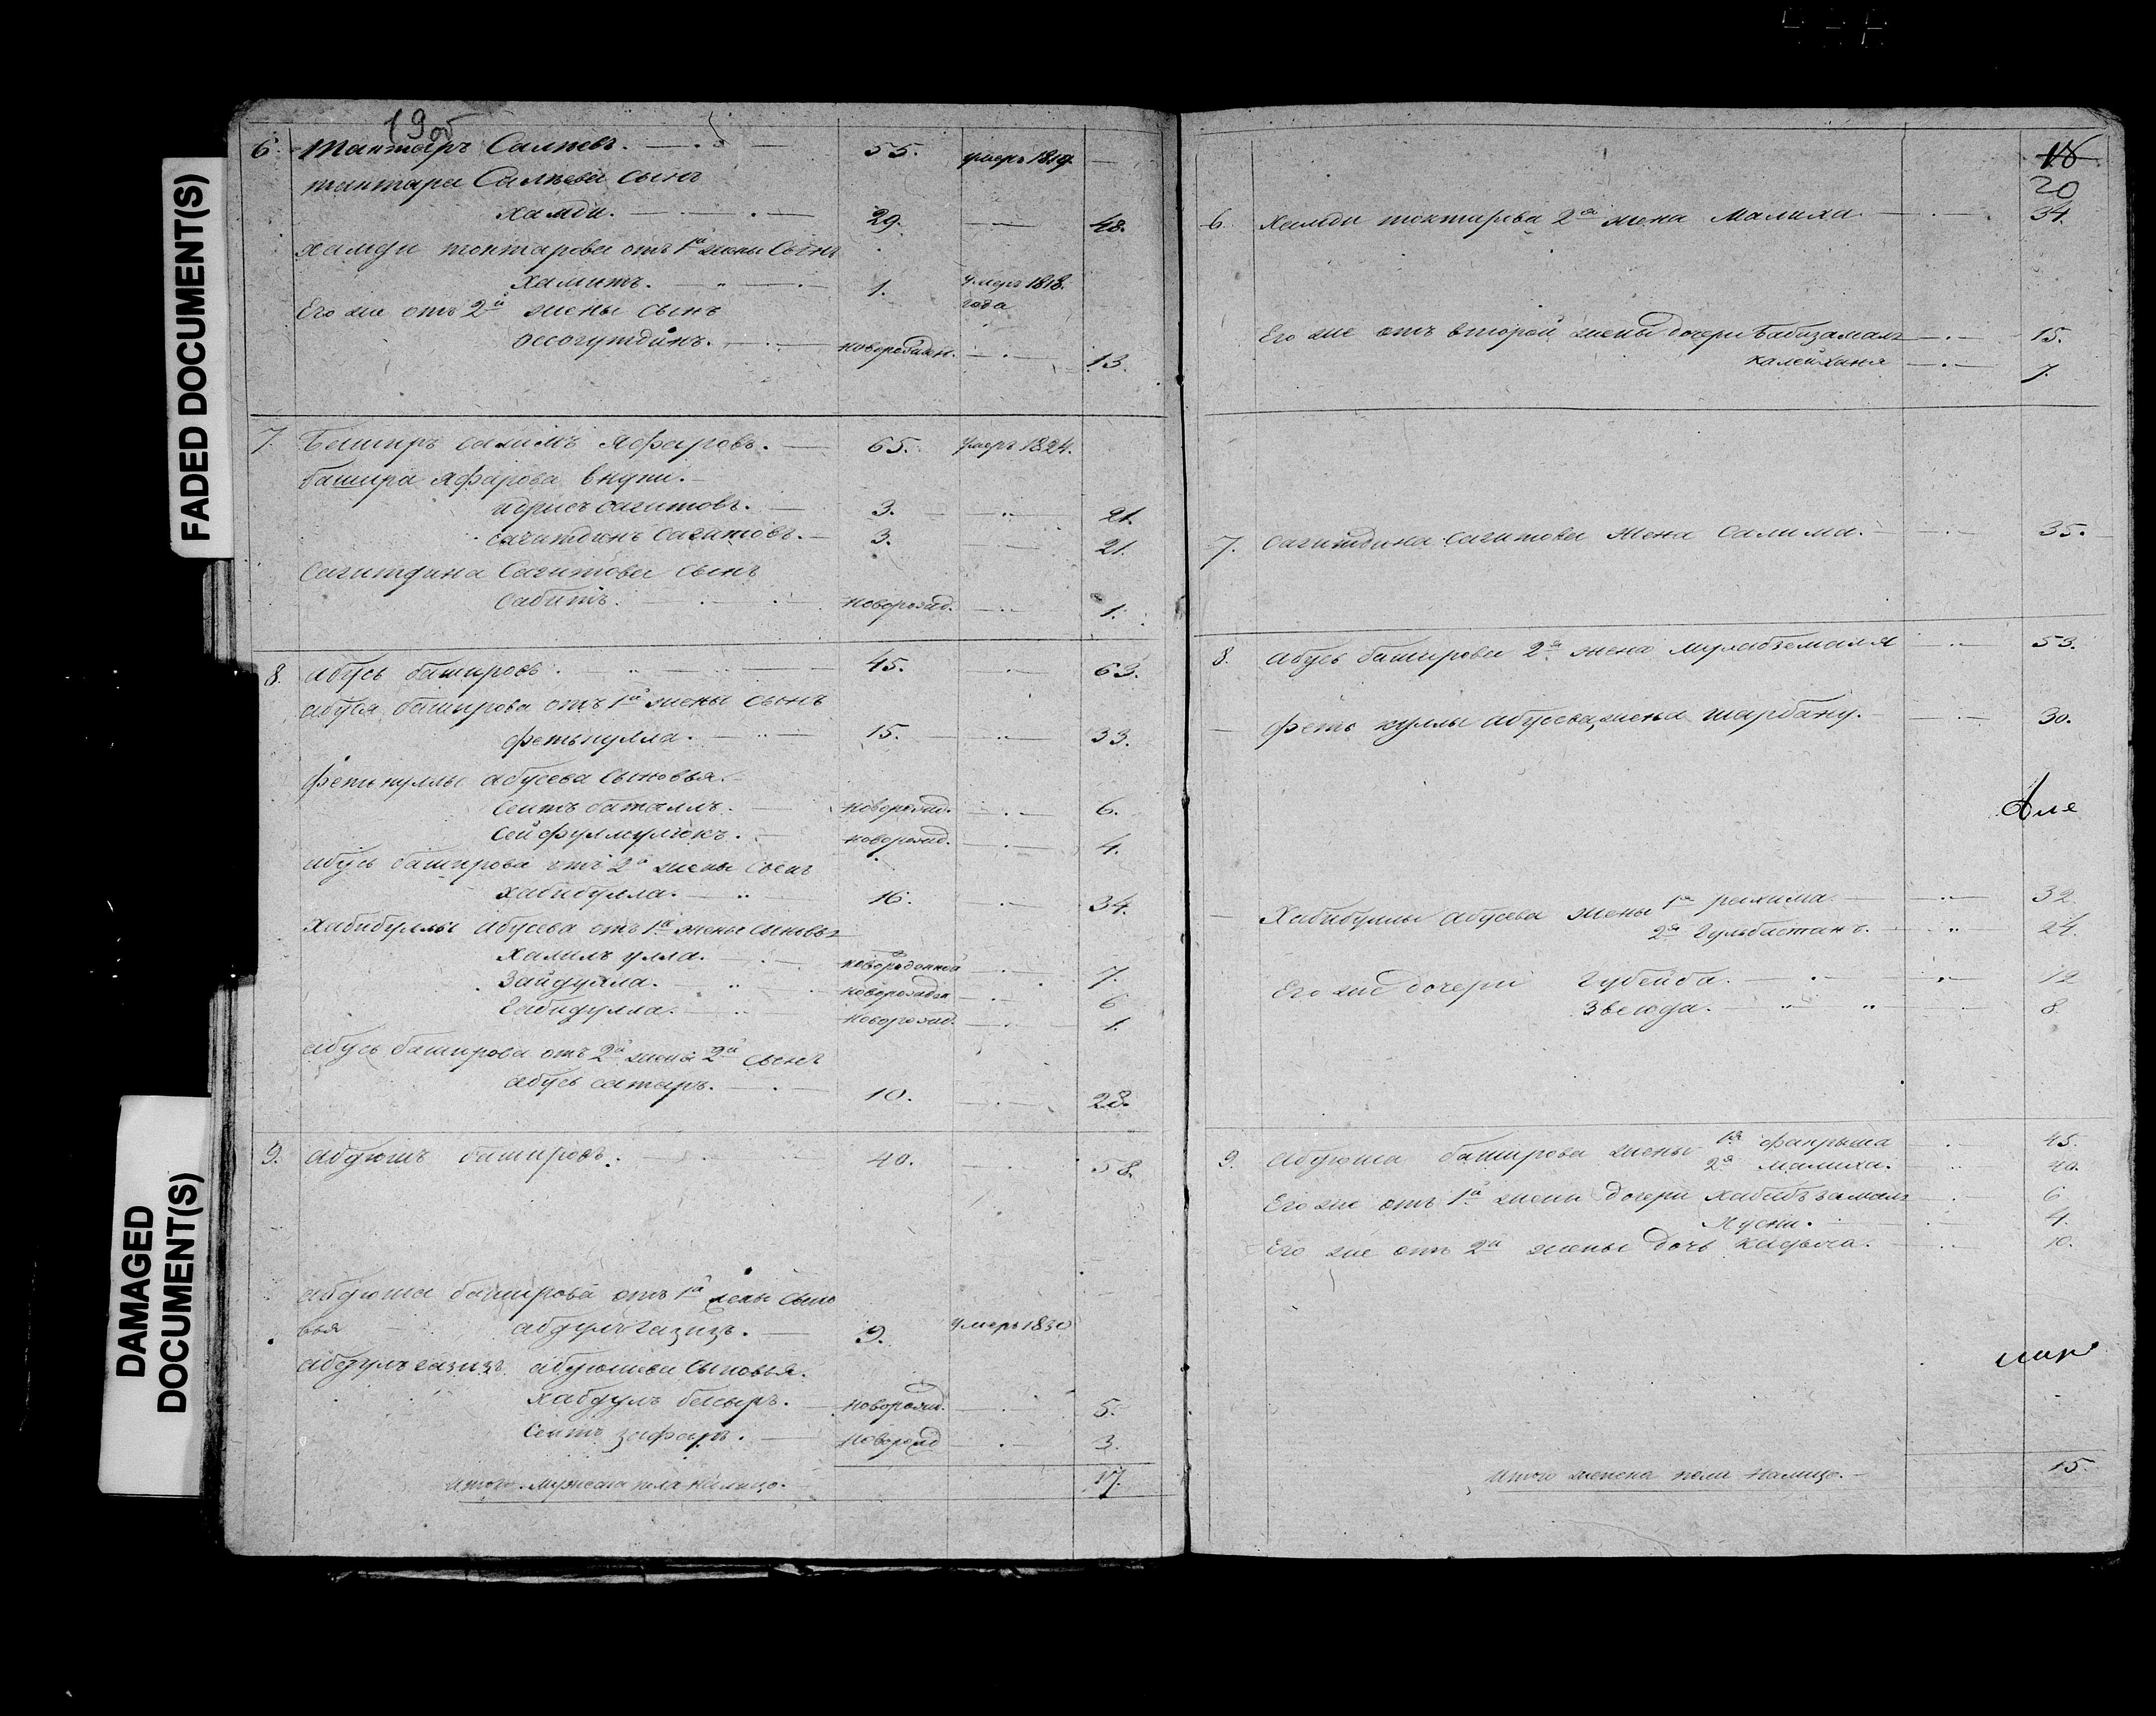 FADED DOCUMENT(S)
DAMAGED DOCUMENT(S)
19об
6. Тактаръ Салтевъ. 55. умеръ 1819.
тактара Салтева сынъ
хамди. 29. 48.
хамди токтарова отъ 1й жены сынъ
хамитъ. 1. умеръ 1818. года
Его же отъ 2й жены сынъ
новорожден. 13.
7. Баширъ салимъ яфаровъ. 65. умеръ 1824.
башира яфарова внуки.
идрисъ сагитовъ. 3. 21.
сагитдинъ сагитовъ. 3. 21.
Сагитдина Сагитова сынъ
сабитъ. новорожд. 1.
8. абусь башировъ. 45. 63.
абуся баширова отъ 1й жены сынъ
феткулла. 15. 33.
феткуллы абусева сыновья.
сеитъ батталъ. новорожд. 6.
сейфулмулюкъ. новорожд. 4.
абусь баширова отъ 2й жены сынъ
хабибулла. 16. 34.
Хабибуллы абусева отъ 1й жены сыновья
халилъ улла. новорожденной 7.
Зайдулла. новорожден 6
Габидулла. новорожд. 1.
абусь баширова отъ 2й жены 2й сынъ
абусь сатаръ. 10. 28.
9. абдюшъ башировъ. 40. 58.
абдюша баширова отъ 1й жены сыно
вья абдулъ газизъ. 9. умеръ 1830
абдулъ газизъ абдюшева сыновья.
хабдулъ басыръ. новорожд. 5.
Сеитъ зафаръ. новорожд 3.
итого мужеска пола налицо. 17.
18
20
6. Хамди токтарова 2я жена Малиха. 34.
Его же отъ второй жены дочери Бабизамалъ 15.
калейханя 7.
7. Сагитдина сагитова жена Салима. 35.
8. абусь баширова 2я жена 53.
феть куллы абусева жена шарбану. 30.
Але
Хабибуллы абусева жены 1я рахима 32
2я Гульбастанъ. 24.
Его же дочери Губейба. 12
Звеюда. 8.
9. абдюша баширова жены 1я 45.
2я малиха. 40.
Его же отъ 1й жены дочери хабибъ замалъ 6
4.
Его же отъ 2й жены дочь кадыча. 10.
итого женска пола налицо. 15.